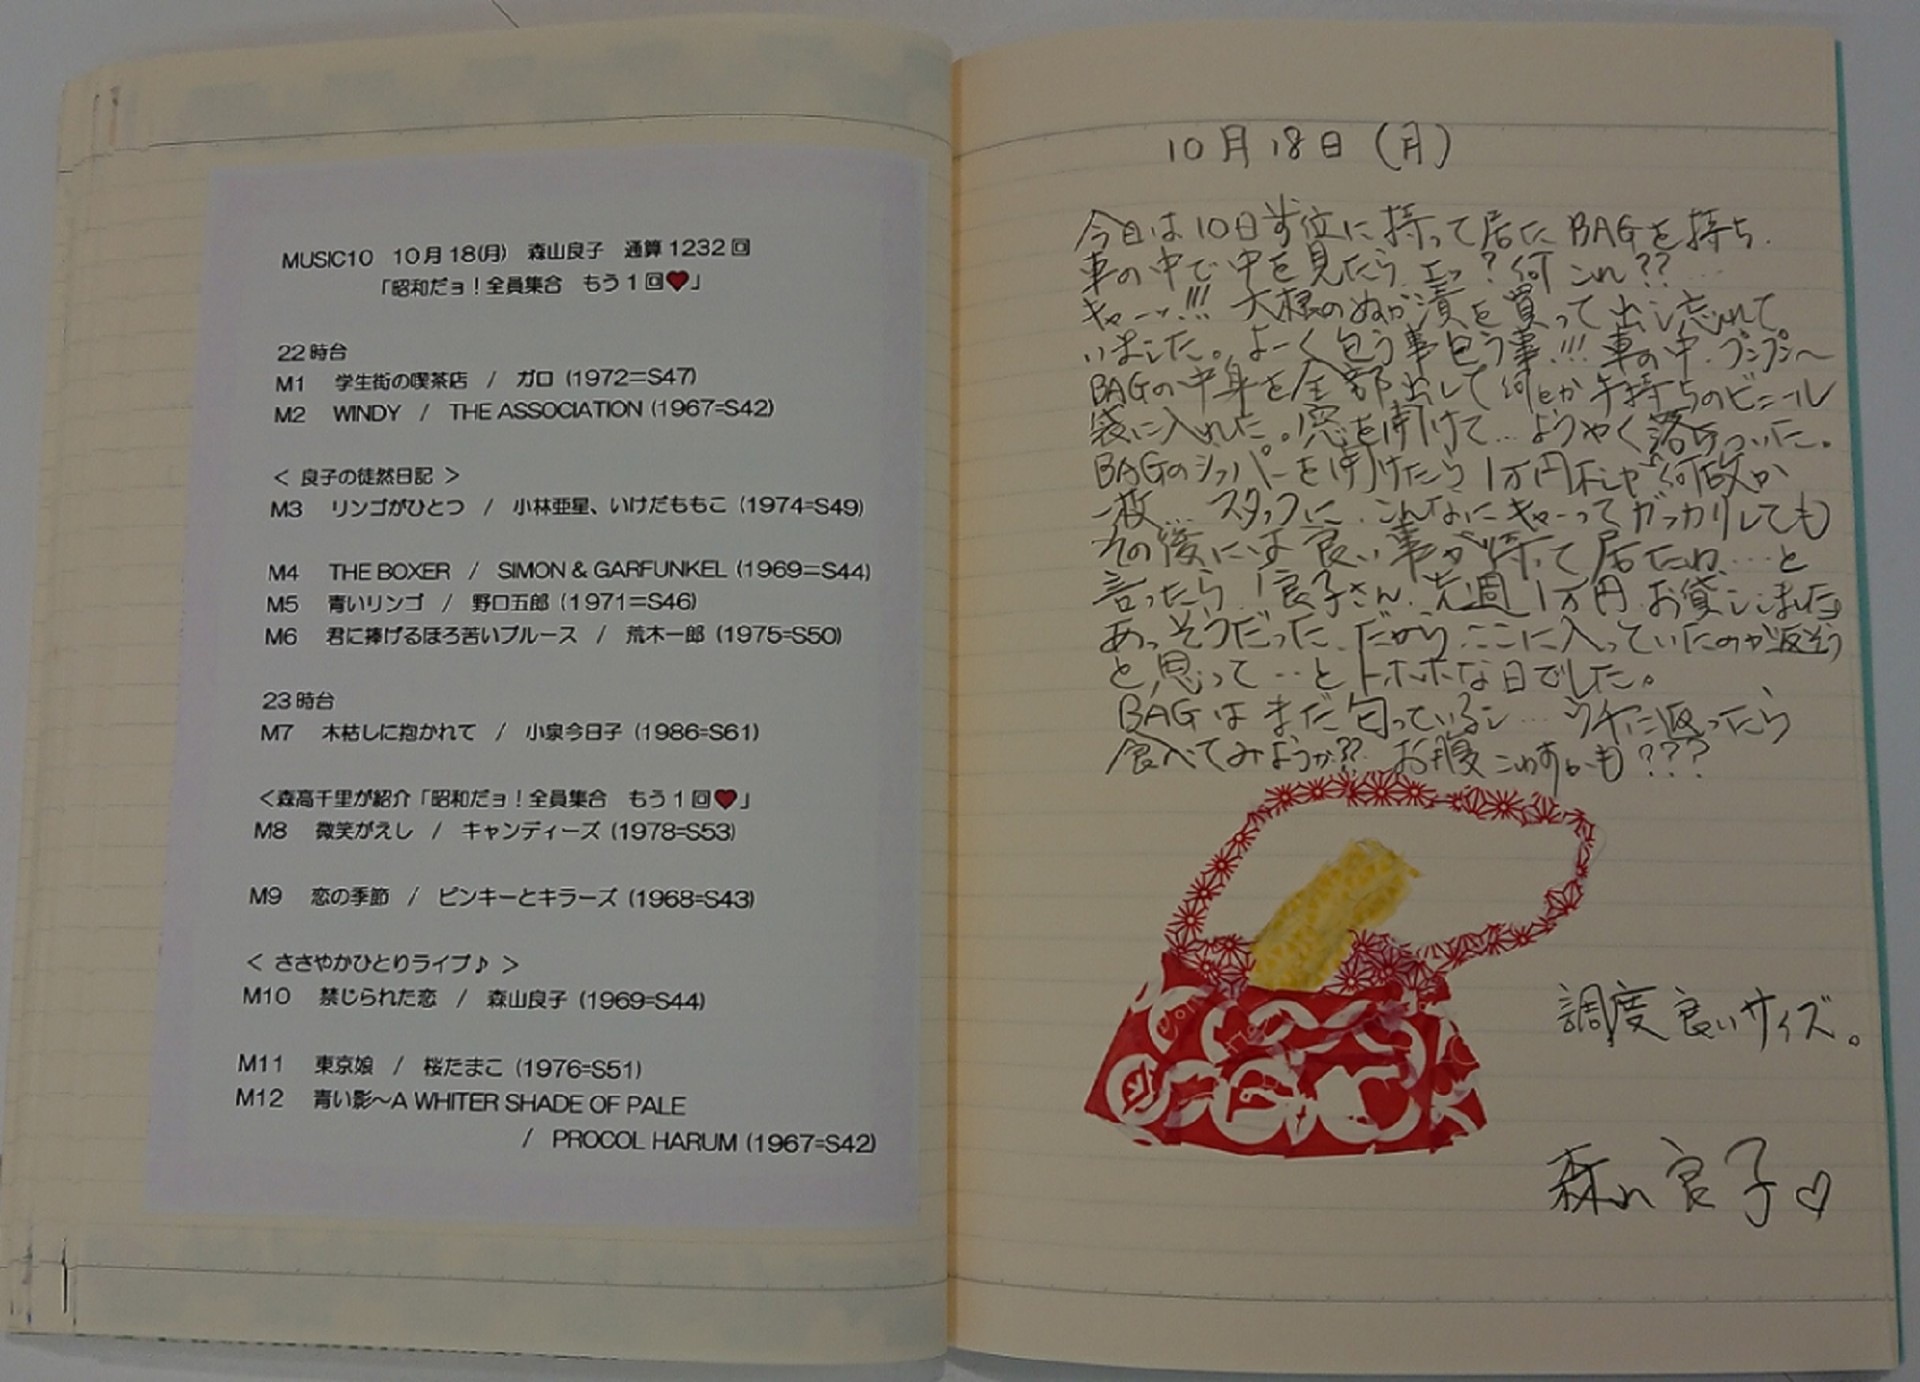 MUSIC10 10月18(月) 森山良子 通算1232回
「昭和だョ!全員集合 もう1回♥」
22時台
M1 学生街の喫茶店 / ガロ (1972=S47)
M2 WINDY / THE ASSOCIATION (1967=S42)
< 良子の徒然日記 >
M3 リンゴがひとつ / 小林亜星、いけだももこ (1974=S49)
M4 THE BOXER / SIMON & GARFUNKEL (1969=S44)
M5 青いリンゴ / 野口五郎 (1971=S46)
M6 君に捧げるほろ苦いブルース / 荒木一郎 (1975=S50)
23時台
M7 木枯しに抱かれて / 小泉今日子 (1986=S61)
<森高千里が紹介「昭和だョ!全員集合 もう1回♥」
M8 微笑がえし / キャンディーズ (1978=S53)
M9 恋の季節 / ピンキーとキラーズ (1968=S43)
< ささやかひとりライブ♪ >
M10 禁じられた恋 / 森山良子 (1969=S44)
M11 東京娘 / 桜たまこ (1976=S51)
M12 青い影〜A WHITER SHADE OF PALE
/ PROCOL HARUM (1967=S42)
10月18日(月)
今日は10日前位に持って居たBAGを持ち、
車の中で中を見たら エッ?何これ??…
キャーッ!!! 大根のぬか漬を買って出し忘れて
いました。よーく匂う事匂う事!!! 車の中、プンプン〜
BAGの中身を全部出して何とか手持ちのビニール
袋に入れた。窓を開けて…ようやく落ちついた。
BAGのジッパーを開けたら1万円札が何故か
一枚… スタッフに、こんなにキャーってガッカリしても
その後には良い事が待って居たね…と
言ったら「良子さん、先週1万円お貸ししました」
あっそうだった、だからここに入っていたのか返そう
と思って…とトホホな日でした。
BAGはまだ匂っているし…ウチに返ったら
食べてみようか?? お腹こわすかも???
調度良いサイズ。
森山良子♡